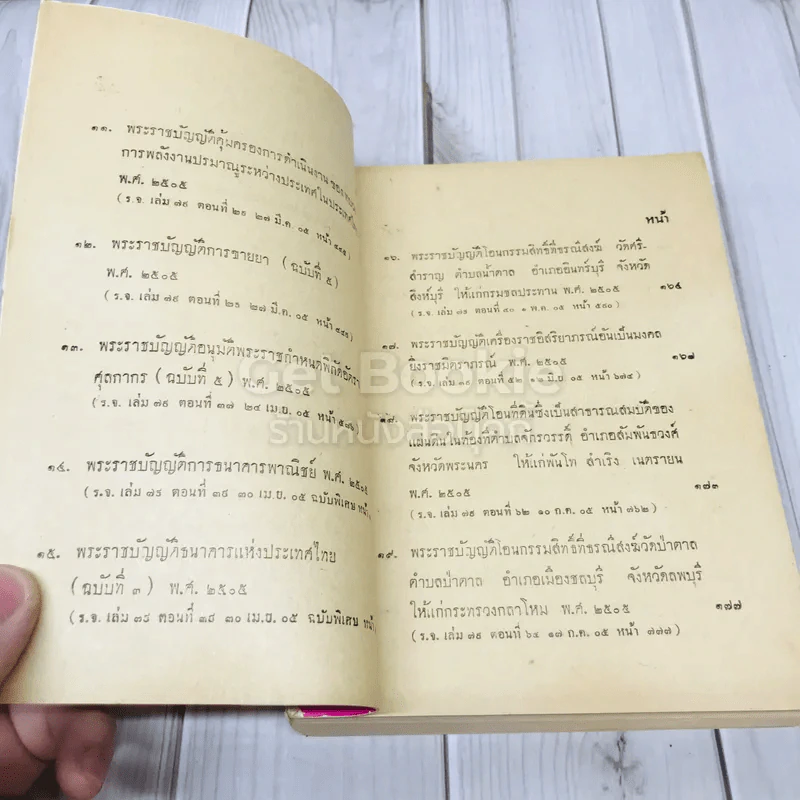 ๑๑. พระราชบัญญัติคุ้มครองการดำเนินงานของ
การพลังงานปรมาณูระหว่างประเทศในประเทศ
พ.ศ. ๒๕๐๕
(ร.จ. เล่ม ๗๙ ตอนที่ ๒๖ ๒๗ มี.ค. ๐๕ หน้า
๑๒. พระราชบัญญัติการขายยา (ฉบับที่ ๕)
พ.ศ. ๒๕๐๕
(ร.จ. เล่ม ๗๙ ตอนที่ ๒๖ ๒๗ มี.ค. ๐๕ หน้า
๑๓. พระราชบัญญัติอนุมัติพระราชกำหนดพิกัดอัตรา
ศุลกากร (ฉบับที่ ๕) พ.ศ. ๒๕๐๕
(ร.จ. เล่ม ๗๙ ตอนที่ ๓๗ ๒๔ เม.ย. ๐๕ หน้า
๑๔. พระราชบัญญัติการธนาคารพาณิชย์ พ.ศ. ๒๕๐๕
(ร.จ. เล่ม ๗๙ ตอนที่ ๓๙ ๓๐ เม.ย. ๐๕ ฉบับพิเศษ หน้า
๑๕. พระราชบัญญัติธนาคารแห่งประเทศไทย
(ฉบับที่ ๓) พ.ศ. ๒๕๐๕
(ร.จ. เล่ม ๗๙ ตอนที่ ๓๙ ๓๐ เม.ย. ๐๕ ฉบับพิเศษ หน้า
หน้า
๑๖. พระราชบัญญัติโอนกรรมสิทธิ์ที่ธรณีสงฆ์ วัดศรี-
สำราญ ตำบลน้ำตาล อำเภออินทร์บุรี จังหวัด
สิงห์บุรี ให้แก่กรมชลประทาน พ.ศ. ๒๕๐๕ ๑๖๕
(ร.จ. เล่ม ๗๙ ตอนที่ ๔๐ ๑ พ.ค. ๐๕ หน้า ๕๘๐)
๑๗. พระราชบัญญัติเครื่องราชอิสริยาภรณ์อันเป็นมงคล
ยิ่งราชมิตราภรณ์ พ.ศ. ๒๕๐๕ ๑๖๗
(ร.จ. เล่ม ๗๙ ตอนที่ ๕๒ ๑๒ มิ.ย. ๐๕ หน้า ๖๗๔)
๑๘. พระราชบัญญัติโอนที่ดินซึ่งเป็นสาธารณสมบัติของ
แผ่นดินในท้องที่ตำบลจักรวรรดิ์ อำเภอสัมพันธวงศ์
จังหวัดพระนคร ให้แก่พันโท สำเริง เนตรายน
พ.ศ. ๒๕๐๕ ๑๗๓
(ร.จ. เล่ม ๗๙ ตอนที่ ๖๒ ๑๐ ก.ค. ๐๕ หน้า ๗๖๒)
๑๙. พระราชบัญญัติโอนกรรมสิทธิ์ที่ธรณีสงฆ์วัดป่าตาล
ตำบลป่าตาล อำเภอเมืองลพบุรี จังหวัดลพบุรี
ให้แก่กระทรวงกลาโหม พ.ศ. ๒๕๐๕ ๑๗๗
(ร.จ. เล่ม ๗๙ ตอนที่ ๖๔ ๑๗ ก.ค. ๐๕ หน้า ๗๗๗)
Get Bookie
ร้านหนังสือบุ๊คกี้